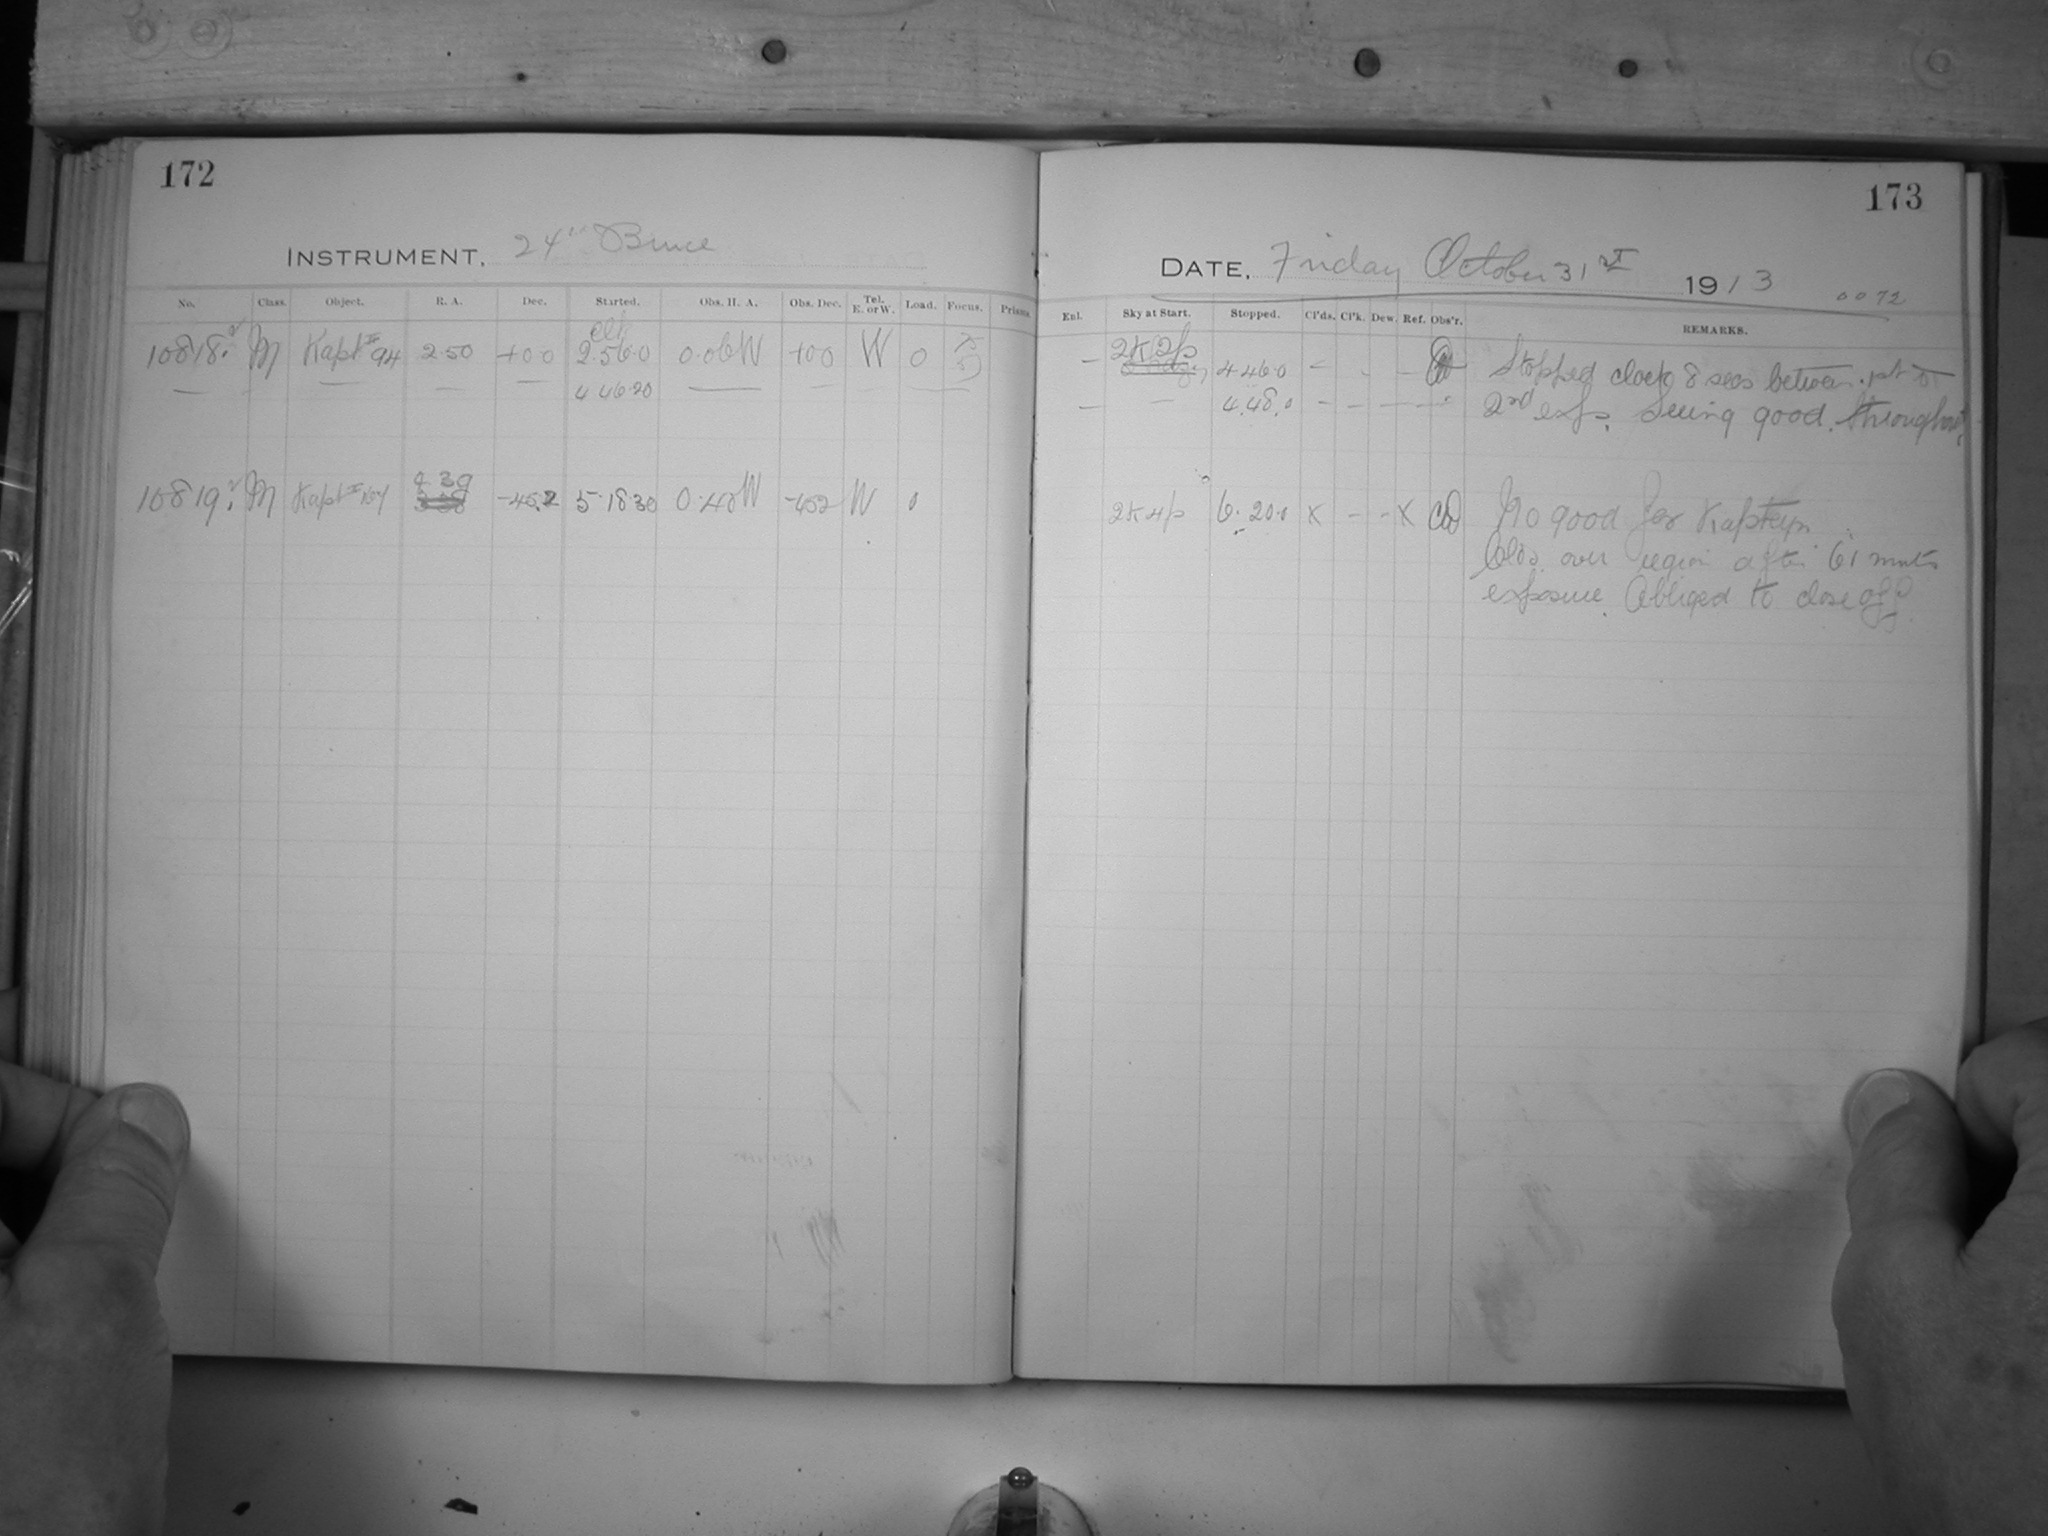 172
INSTRUMENT, 24" Bruce
No. Class. Object. R. A. Dec. Started. Obs. H. A. Obs. Dec. Tel. E. or W. Load. Focus. Prisms.
10818. M Kapt 94 2.50 +00 2.56.0 0.06W +00 W 0
4 46.20
10819. M Kapt 4 39 -45.2 5.18.30 0.40W -452 W 0
173
DATE, Friday October 31st 1913
0072
Enl. Sky at Start. Stopped. Cl'ds. Cl'k. Dew. Ref. Obs'r. REMARKS.
— 2K2p 4 46.0 - . - Stopped clock 8 secs between 1st &
— — 4.48.0 - - - - 2nd exp. Seeing good throughout
2K4p 6.20.0 X - - X No good for Kapteyn
Clds. over region after 61 mnts
exposure. Obliged to close off